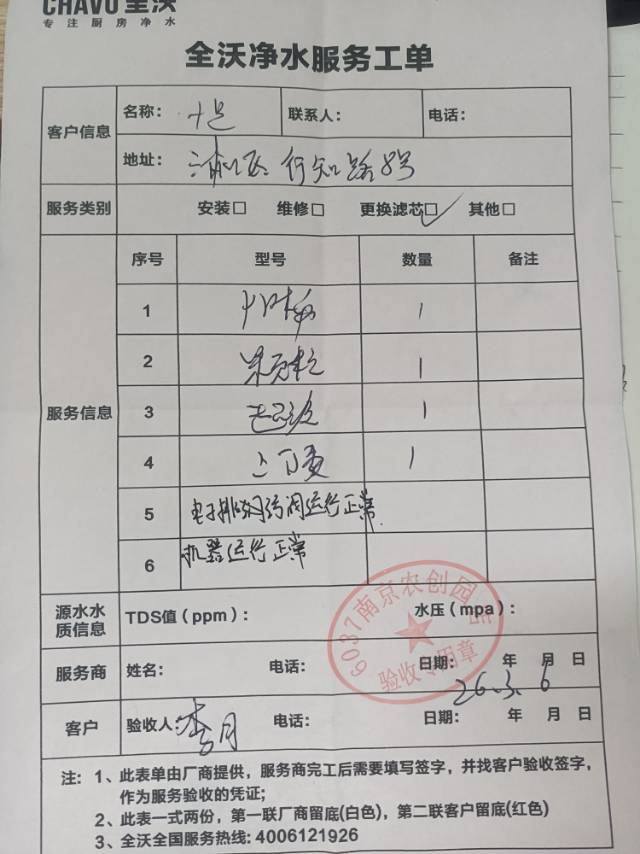 CHAVO 全沃
专注厨房净水
全沃净水服务工单
客户信息
名称:
联系人:
电话:
地址: 行知路8号
服务类别
安装□ 维修□ 更换滤芯□✓ 其他□
服务信息
序号 型号 数量 备注
1 1
2 果壳粒 1
3 1
4 1
5 电子排水阀运行正常
6 机器运行正常
源水水质信息
TDS值（ppm）:
水压（mpa）:
6031南京农创园店
验收专用章
服务商 姓名: 电话: 日期: 年 月 日
26.3.6
客户 验收人: 李月 电话: 日期: 年 月 日
注: 1、此表单由厂商提供，服务商完工后需要填写签字，并找客户验收签字，
作为服务验收的凭证;
2、此表一式两份，第一联厂商留底(白色)，第二联客户留底(红色)
3、全沃全国服务热线: 4006121926